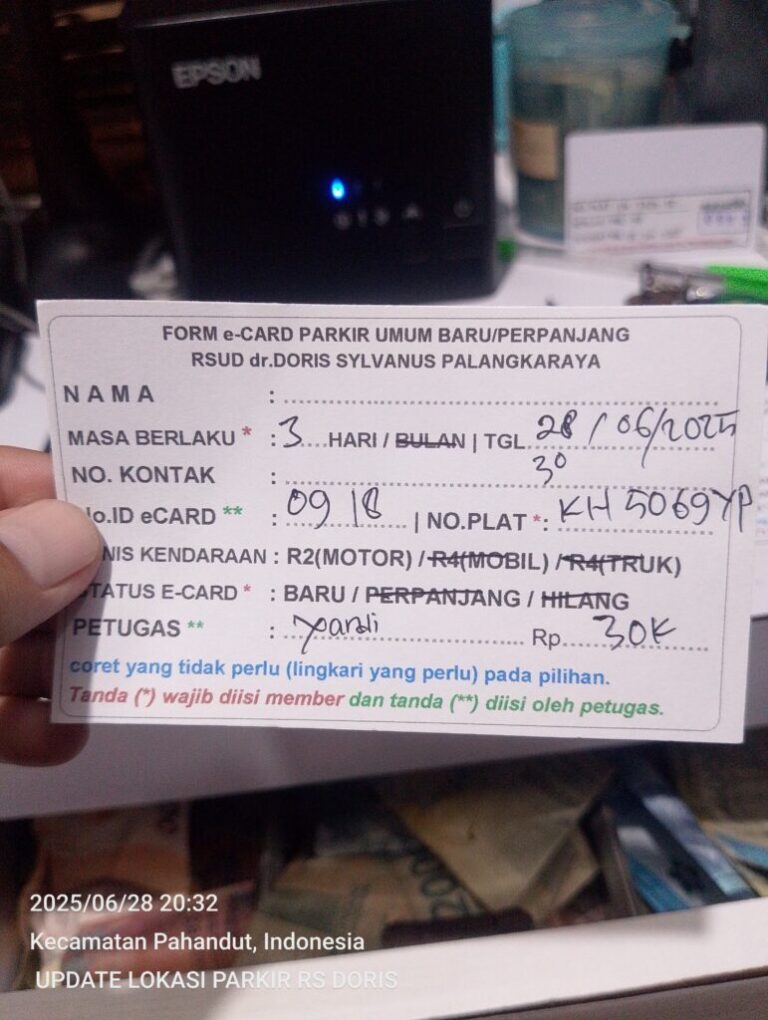 EPSON
FORM e-CARD PARKIR UMUM BARU/PERPANJANG
RSUD dr.DORIS SYLVANUS PALANGKARAYA
NAMA : 
MASA BERLAKU * : 3 HARI / BULAN | TGL 28 / 06/2025
30
NO. KONTAK :
No.ID eCARD ** : 0918 | NO.PLAT *: KH 5069YP
NIS KENDARAAN : R2(MOTOR) / R4(MOBIL) / R4(TRUK)
STATUS E-CARD * : BARU / PERPANJANG / HILANG
PETUGAS ** : Yardi Rp 30K
coret yang tidak perlu (lingkari yang perlu) pada pilihan.
Tanda (*) wajib diisi member dan tanda (**) diisi oleh petugas.
2025/06/28 20:32
Kecamatan Pahandut, Indonesia
UPDATE LOKASI PARKIR RS DORIS